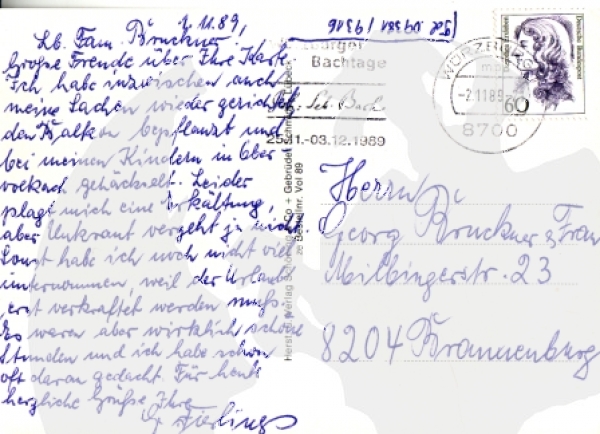 1.11.89,
Lb. Fam. Bruckner
Große Freude über Ihre Karte.
Ich habe inzwischen auch
meine Sachen wieder gesichtet
den Balkon bepflanzt und
bei meinen Kindern in Ober
gehäckselt. Leider
plagt mich eine Erkältung,
aber Unkraut vergeht ja nicht.
Sonst habe ich noch nicht viel
unternommen, weil der Urlaub
erst verkraftet werden muß.
Es waren aber wirklich schöne
Stunden und ich habe schon
oft daran gedacht. Für heute
herzliche Grüße Ihre
Bachtage
25.11.-03.12.1989
WÜRZBURG
-2.11.89-
8700
Deutsche Bundespost
60
Herrn
Georg Bruckner & Frau
Milbingerstr. 23
8204 Brannenburg